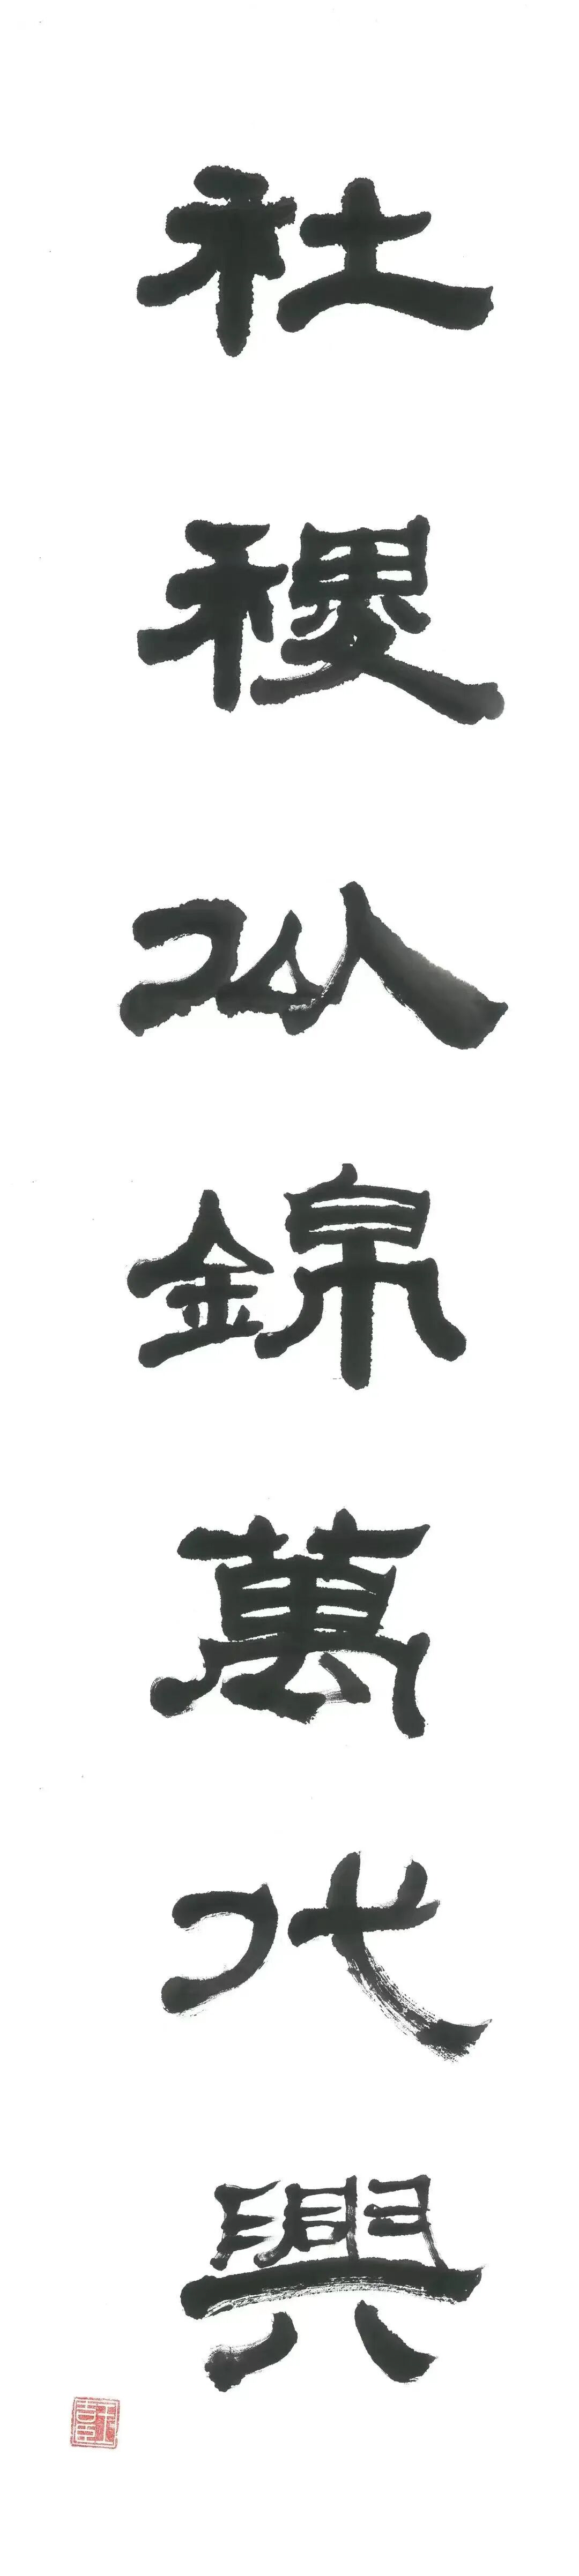 社稷似錦萬代興